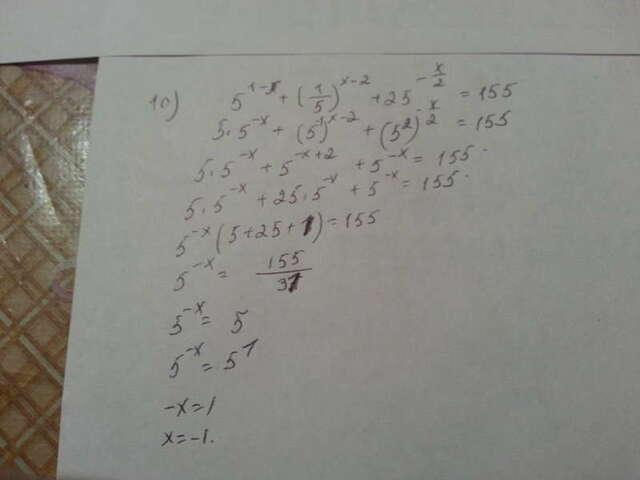 10) 5^{1-x} + (1/5)^{x-2} + 25^{-x/2} = 155
5·5^{-x} + (5^{1})^{x-2} + (5^{2})^{x/2} = 155
5·5^{-x} + 5^{-x+2} + 5^{-x} = 155
5·5^{-x} + 25·5^{-x} + 5^{-x} = 155
5^{-x}(5+25+1) = 155
5^{-x} = 155/31
5^{-x} = 5
5^{-x} = 5^{1}
-x=1
x=-1.